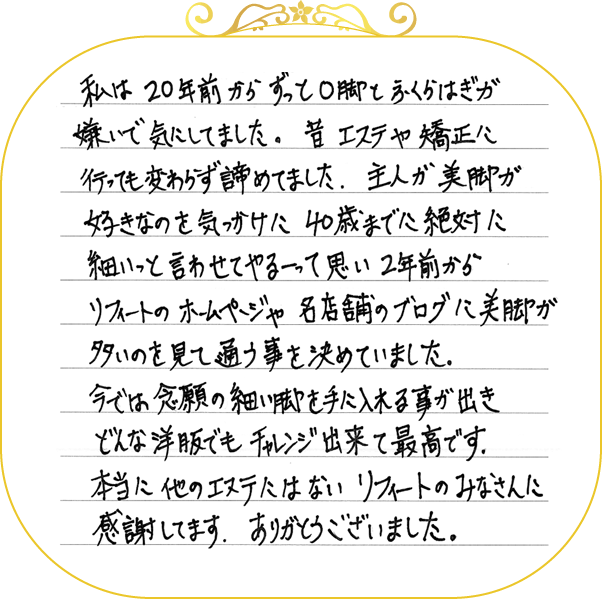 私は 20年前からずっとO脚とふくらはぎが
嫌いで気にしてました。昔 エステや矯正に
行っても変わらず諦めてました. 主人が美脚が
好きなのを気っかけに 40歳までに絶対に
細いっと言わせてやるーって思い2年前から
リフィートのホームページや 名店舗のブログに美脚が
多いのを見て通う事を決めていました。
今では念願の細い脚を手に入れる事が出き
どんな洋服でもチャレンジ出来て最高です.
本当に他のエステにはないリフィートのみなさんに
感謝してます. ありがとうございました。